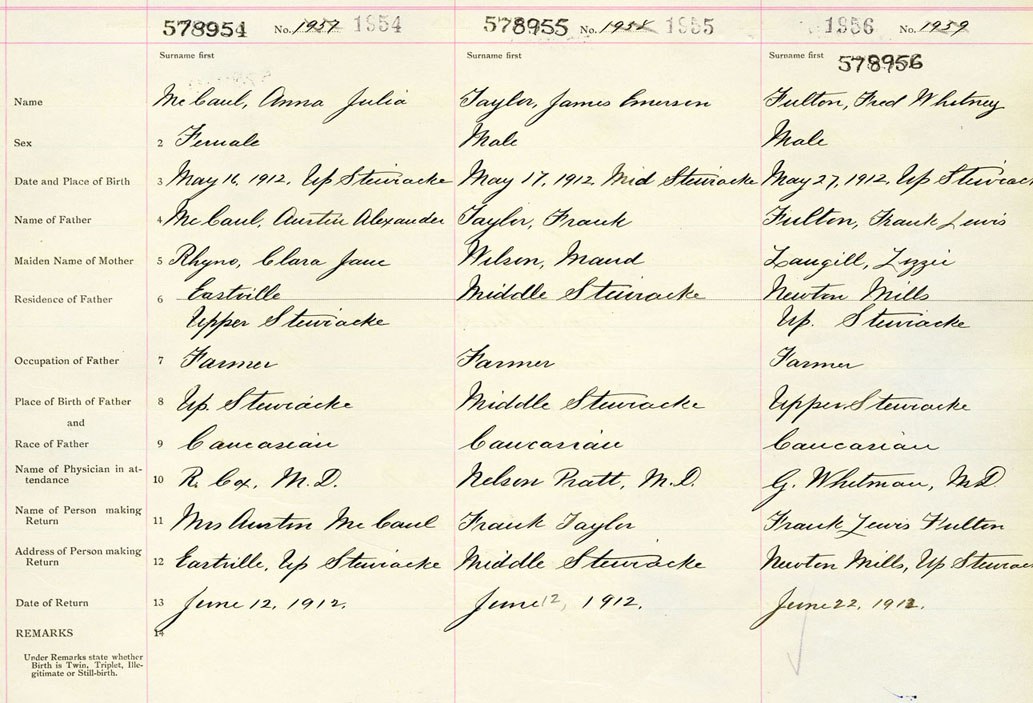 578954 No. 1937 1954 578955 No. 1938 1955 1956 No. 1939
Surname first Surname first Surname first 578956
Name McCaul, Anna Julia Taylor, James Emerson Fulton, Fred Whitney
Sex 2 Female Male Male
Date and Place of Birth 3 May 16, 1912. Up Stewiacke May 17, 1912 Mid Stewiacke May 27, 1912. Up Stewiack
Name of Father 4 McCaul, Austin Alexander Taylor, Frank Fulton, Frank Lewis
Maiden Name of Mother 5 Rhyno, Clara Jane Wilson, Maud Langill, Lizzie
Residence of Father 6 Eastville Middle Stewiacke Newton Mills
Upper Stewiacke Up. Stewiacke
Occupation of Father 7 Farmer Farmer Farmer
Place of Birth of Father 8 Up. Stewiacke Middle Stewiacke Upper Stewiacke
and
Race of Father 9 Caucasian Caucasian Caucasian
Name of Physician in at-
tendance 10 R. Cox, M.D. Nelson Pratt, M.D. G. Whitman, M.D
Name of Person making
Return 11 Mrs Austin McCaul Frank Taylor Frank Lewis Fulton
Address of Person making
Return 12 Eastville, Up Stewiacke Middle Stewiacke Newton Mills, Up Stewiac
Date of Return 13 June 12, 1912. June 12, 1912. June 22, 1912.
REMARKS 14
Under Remarks state whether
Birth is Twin, Triplet, Ille-
gitimate or Still-birth.